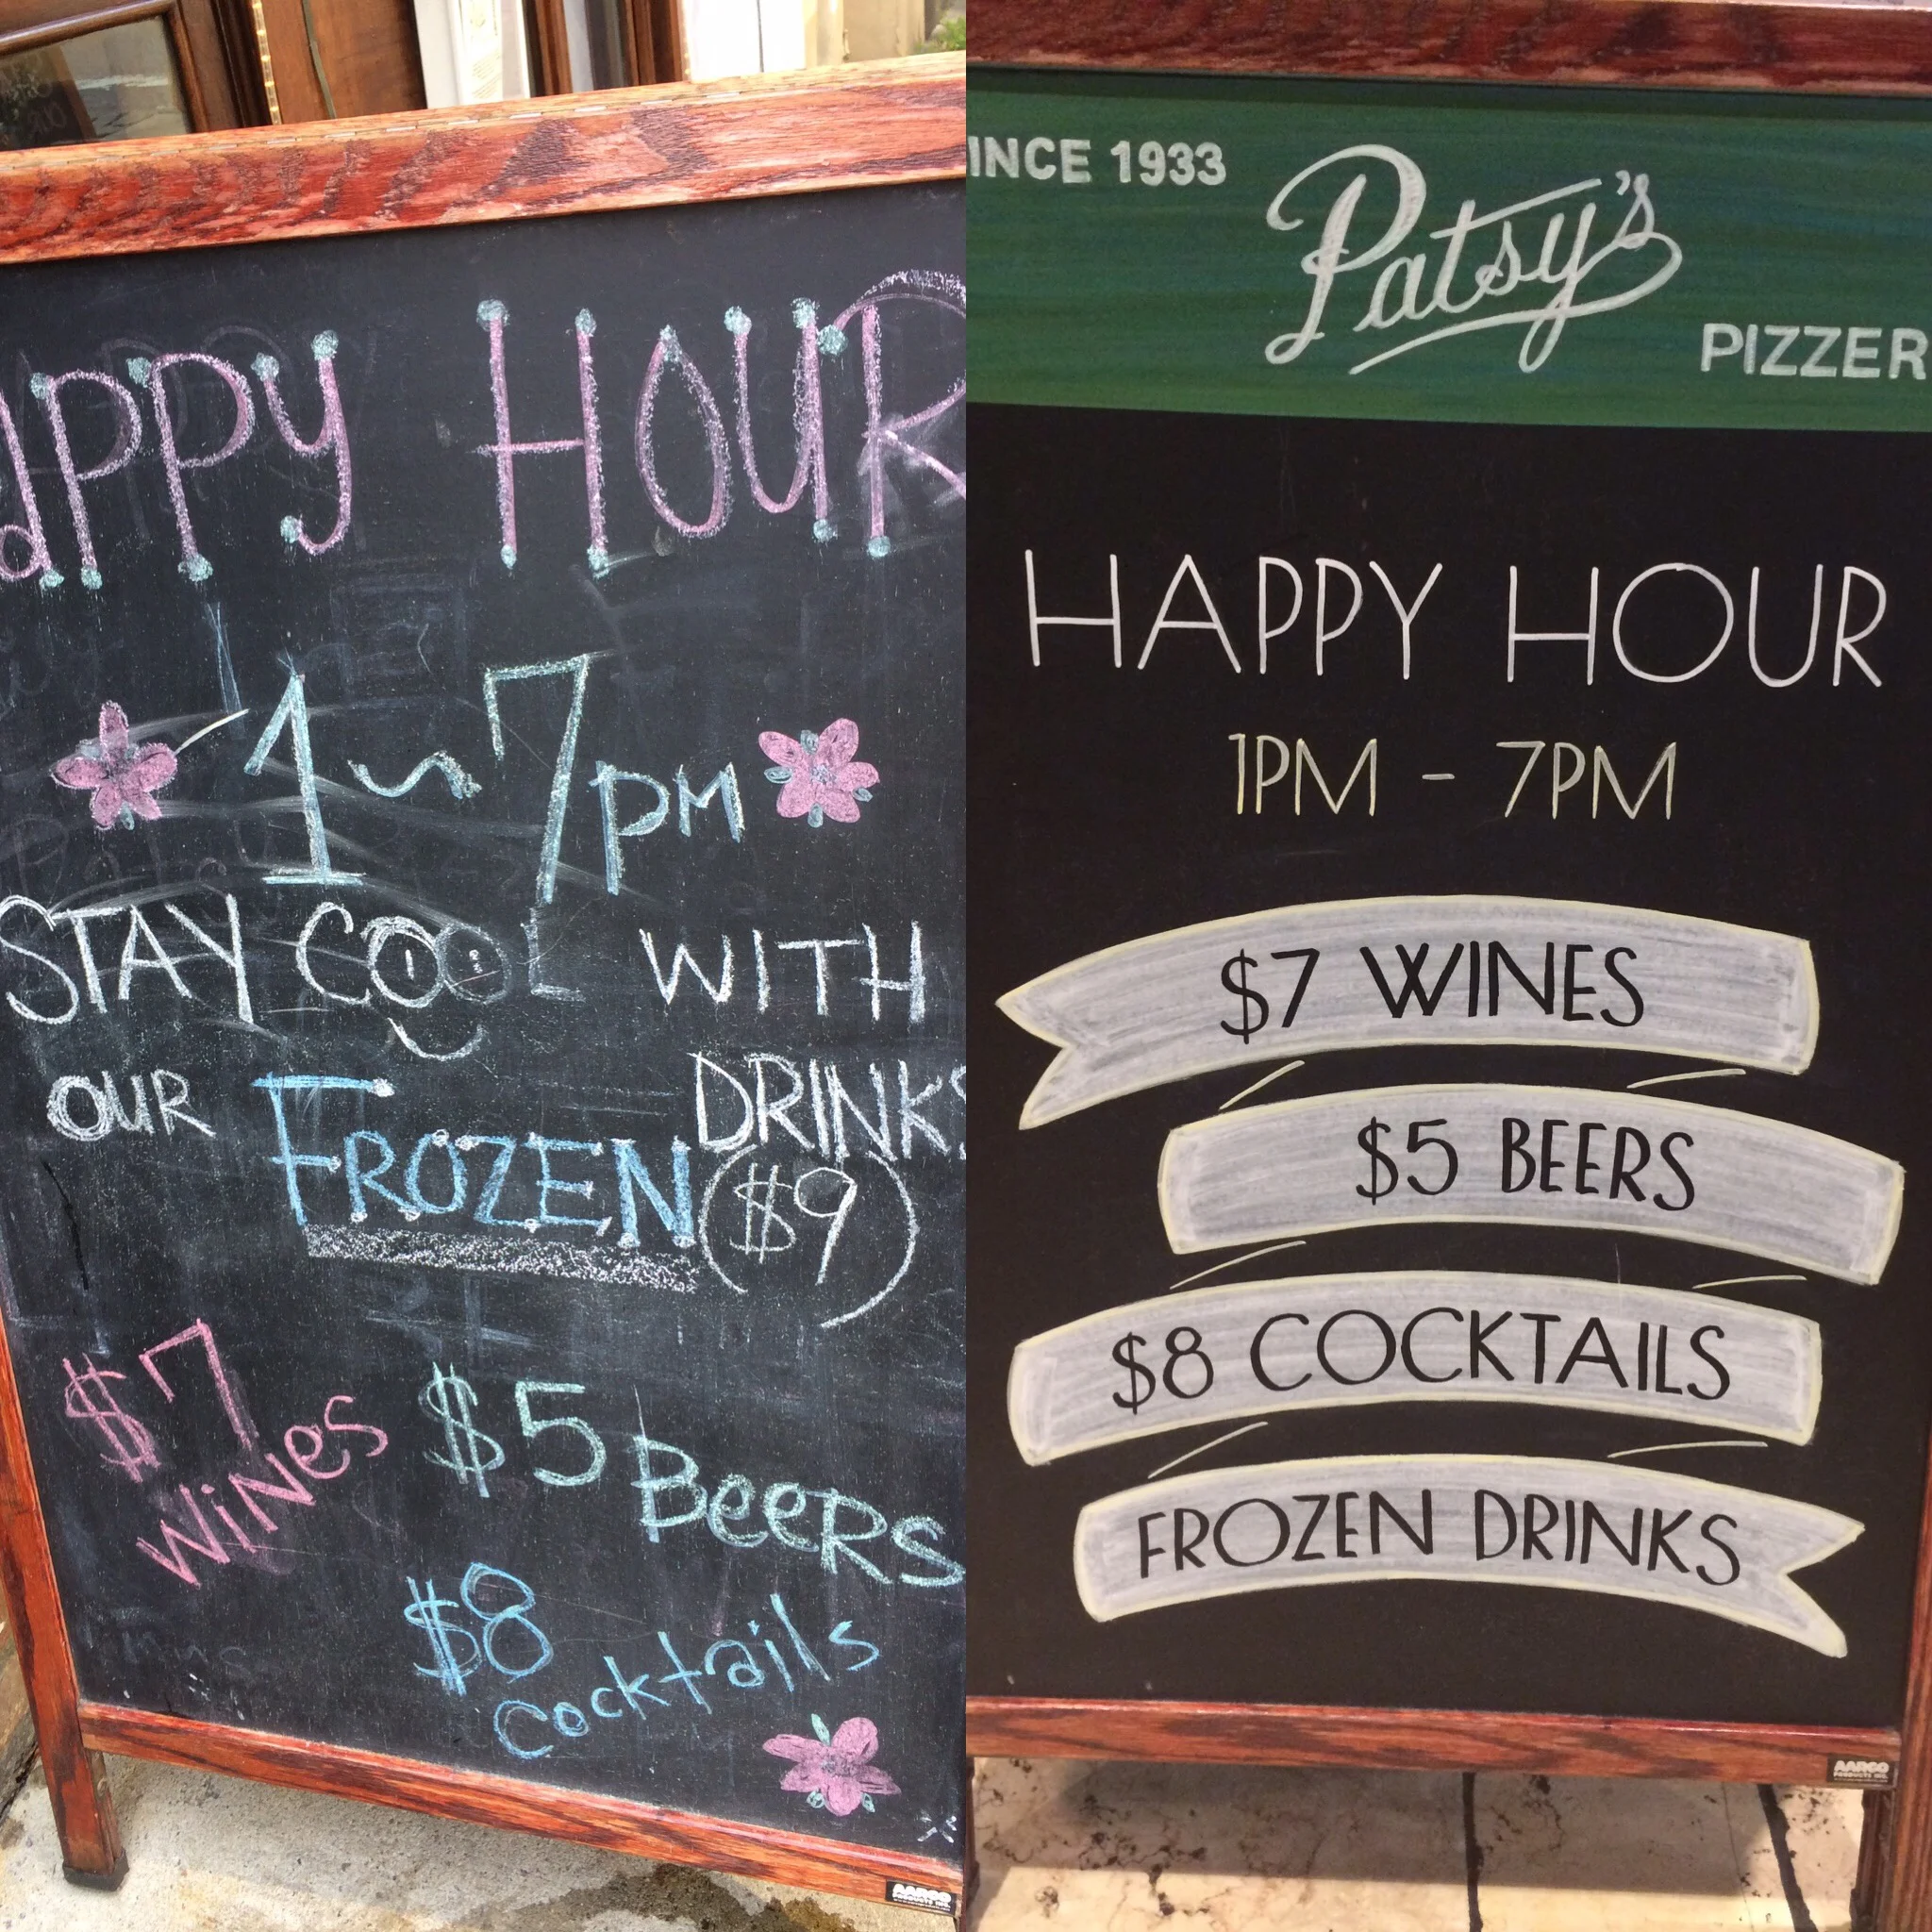 aPPy HOUR
1~7PM
STAY COOL WITH
OUR FROZEN DRINKS
($9)
$7
WiNes
$5
BeeRS
$8
Cocktails
AARCO
INCE 1933
Patsy's
PIZZER
HAPPY HOUR
1PM - 7PM
$7 WINES
$5 BEERS
$8 COCKTAILS
FROZEN DRINKS
AARCO
PRODUCTS INC.